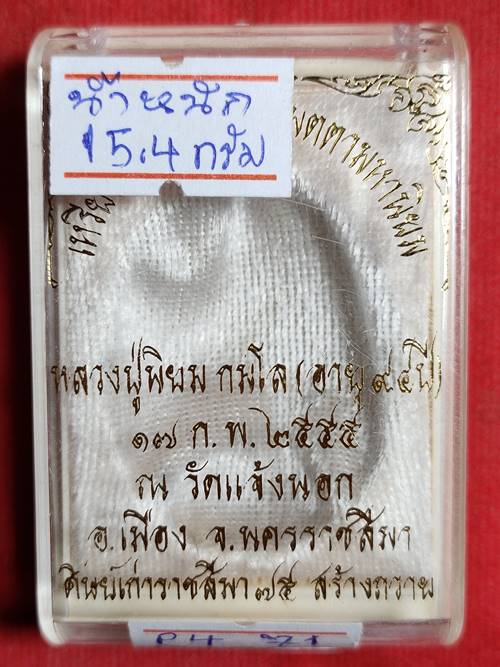 น้ำหนัก
15.4 กรัม
เหรีย เมตตามหานิยม
หลวงปู่นิยม กมโล (อายุ ๙๕ ปี)
๑๗ ก.พ. ๒๕๕๕
ณ วัดแจ้งนอก
อ.เมือง จ.นครราชสีมา
ศิษย์เก่าราชสีมา ๗๕ สร้างถวาย